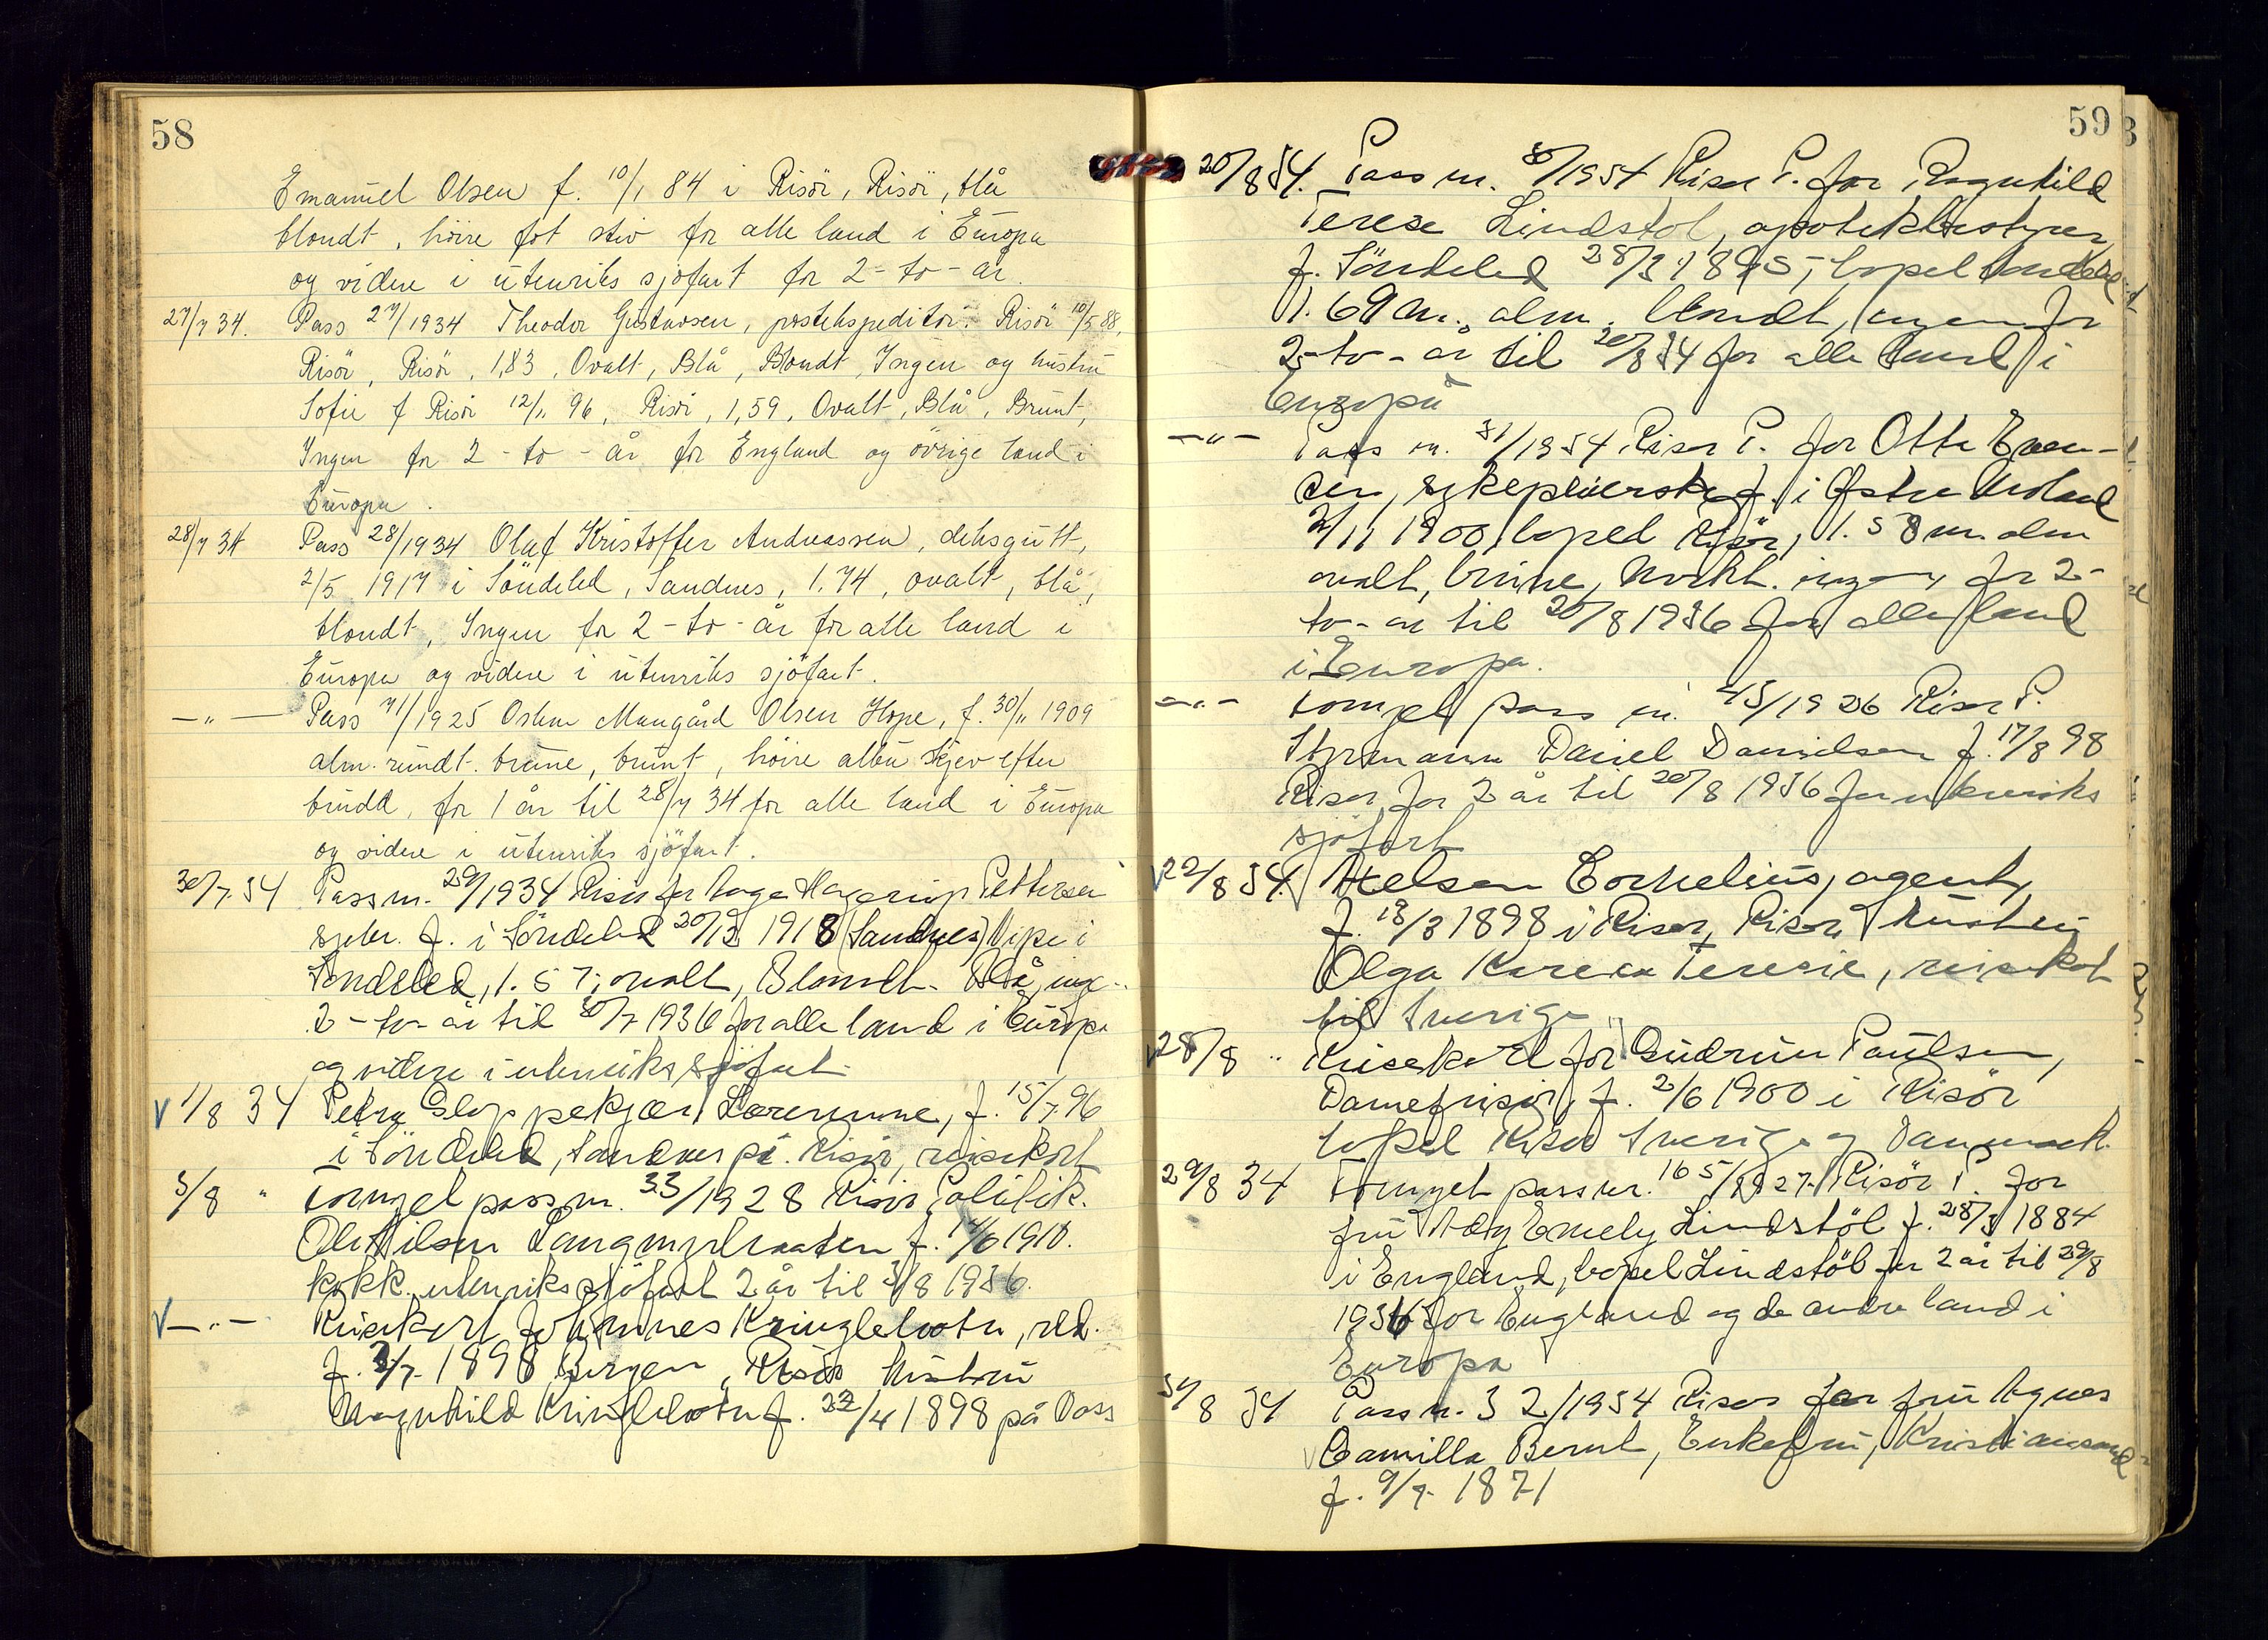 58
Emanuel Olsen f. 10/1 84 i Risör, Risör, blå
blondt, höire fot stiv for alle land i Europa
og videre i utenriks sjöfart for 2-to-år.
27/7 34. Pass 27/1934 Theodor Gustavsen, postekspeditör. Risör 10/5 88,
Risör, Risör, 1,83, Ovalt, Blå, Blondt, Ingen og hustru
Sofie f Risör 12/11 96, Risör, 1,59, Ovalt, Blå, Brunt,
Ingen for 2-to-år for England og övrige land i
Europa.
28/7 34 Pass 28/1934 Olaf Kristoffer Andreassen, deksgutt,
2/5 1917 i Söndeled, Sandnes, 1.74, ovalt, blå,
blondt, Ingen for 2-to-år for alle land i
Europa og videre i utenriks sjöfart.
—„— Pass 71/1925 Oskar Maugård Olsen Hope, f. 30/11 1909
alm. rundt. brune, brunt, höire albu skjev efter
brudd, for 1 år til 28/7 34 for alle land i Europa
og videre i utenriks sjöfart.
30/7.34 Pass nr. 29/1934 Risör for Aage Hagerup Pettersen
sjøm. f. i Söndeled 20/12 1918 (Sandnes) i
Söndeled, 1.57, ovalt, Blondt. Blå, ing..
2-to-år til 30/7 1936 for alle land i Europa
og videre i utenriks sjöfart
V 1/8 34 Petra Gloppekjær Lorenme, f. 15/7.96
i Söndeled, Sandnes pr. Risör, reisekort
3/8 " Fornyet pass nr. 33/1928 Risör Politik.
Ole Nilsen Langmyrbraaten f. 14/6 1910.
kokk. utenriks sjöfart 2 år til 3/8 1936.
V—„— Reisekort Johannes Kringlebotn,
f. 2/7. 1898 Bergen, Risör hustru
Magnhild Kringlebotn f. 22/4 1898 på Voss
59
20/8 34. Pass nr. 30/1934 Risør P. for Ragnhild
Terese Lindstøl, apotekbestyrer
f. Söndeled 28/3 1895, bopel Söndeled
1.69 m. alm. blondt, ingen for
2-to-år til 20/8 34 for alle land i
Europa
—„— Pass nr. 31/1934 Risør P. for Otte Even-
sen, sykepleierske f. i Østre Moland
2/11 1900, bopel Risör, 1.58 m. alm
ovalt, brune, mørkt. ingen, for 2-
to-år til 20/8 1936 for alle land
i Europa.
—„— Fornyet pass nr. 45/1926 Risør P.
Styrmann Daniel Danielsen f. 17/8 98
Risør, for 2 år til 20/8 1936 for utenriks
sjöfart
V 22/8 34. Axelsen Cornelius, agent,
f. 18/3 1898 i Risør, Risör, hustru
Olga Karen Teresie, reisekort
til Sverige
V 28/8 „ Reisekort for Gudrun Paulsen,
Damefrisör, f. 2/6 1900 i Risör
bopel Risör Sverige og Danmark.
29/8 34 Fornyet pass nr. 165/1927. Risör P. for
fru Emely Lindstöl f. 28/3 1884
i England, bopel Lindstöl for 2 år til 29/8
1936 for England og de andre land i
Europa
31/8 34 Pass nr. 32/1934 Risør for fru Agnes
Camilla Bernt, Enkefru, Kristiansand
f. 9/7. 1871